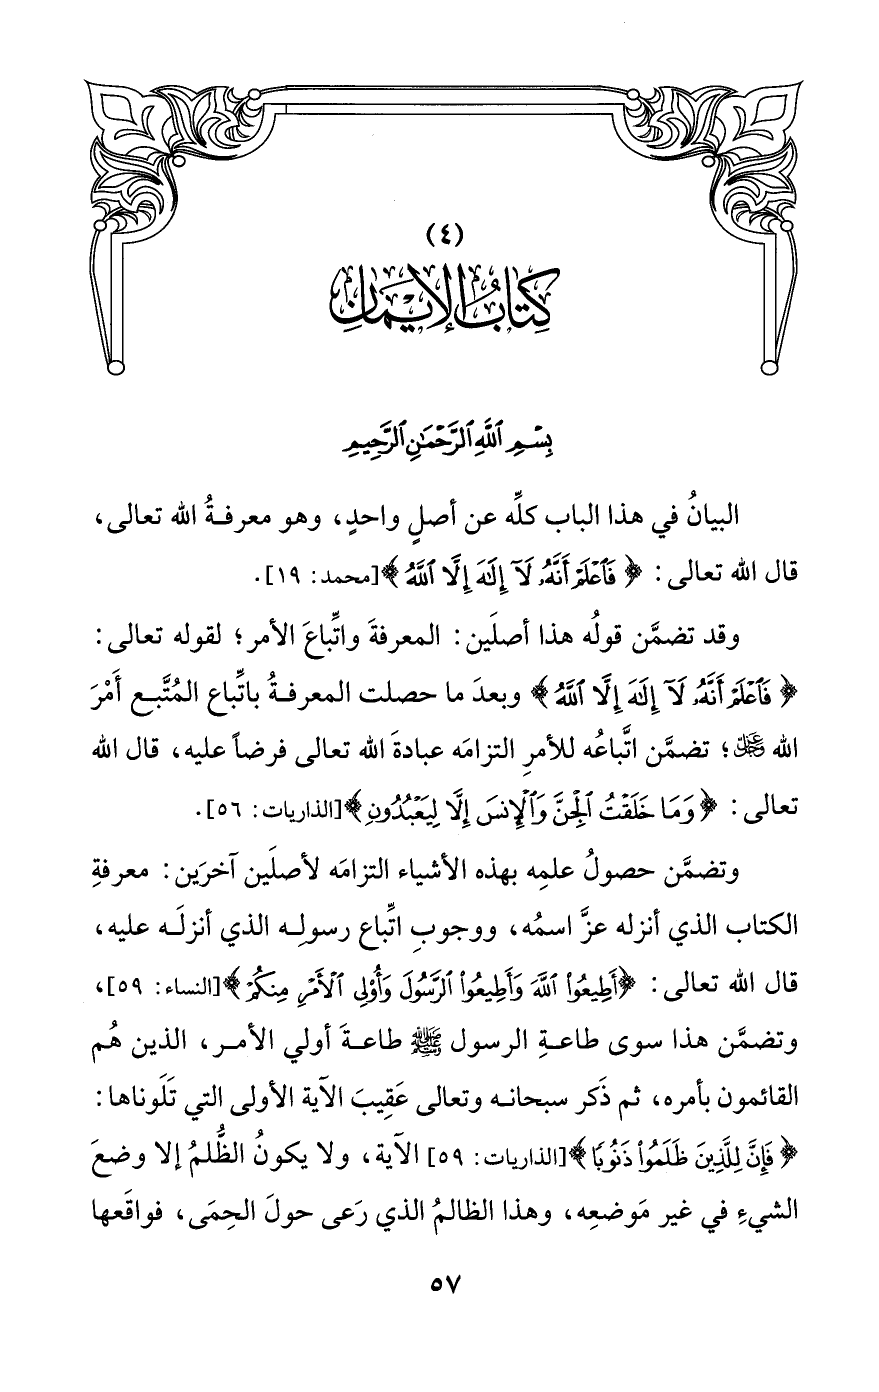 (٤)
كِتَابُ الإِيمَانِ
بِسْمِ ٱللَّهِ ٱلرَّحْمَٰنِ ٱلرَّحِيمِ
البيانُ في هذا الباب كلِّه عن أصلٍ واحدٍ، وهو معرفـةُ الله تعالى،
قال الله تعالى: ﴿فَٱعْلَمْ أَنَّهُۥ لَآ إِلَٰهَ إِلَّا ٱللَّهُ﴾[محمد: ١٩].
وقد تضمَّن قولُه هذا أصلَين: المعرفةَ واتِّباعَ الأمر؛ لقوله تعالى:
﴿فَٱعْلَمْ أَنَّهُۥ لَآ إِلَٰهَ إِلَّا ٱللَّهُ﴾ وبعدَ ما حصلت المعرفـةُ باتِّباع المُتَّبـع أَمْرَ
الله ﷿؛ تضمَّن اتَّباعُه للأمرِ التزامَه عبادةَ الله تعالى فرضاً عليه، قال الله
تعالى: ﴿وَمَا خَلَقْتُ ٱلْجِنَّ وَٱلْإِنسَ إِلَّا لِيَعْبُدُونِ﴾[الذاريات: ٥٦].
وتضمَّن حصولُ علمِه بهذه الأشياء التزامَه لأصلَين آخرَين: معرفةِ
الكتاب الذي أنزله عزَّ اسمُه، ووجوبِ اتِّباع رسولِـه الذي أنزلَـه عليه،
قال الله تعالى: ﴿أَطِيعُوا۟ ٱللَّهَ وَأَطِيعُوا۟ ٱلرَّسُولَ وَأُو۟لِى ٱلْأَمْرِ مِنكُمْ﴾[النساء: ٥٩]،
وتضمَّن هذا سوى طاعـةِ الرسول ﷺ طاعـةَ أولي الأمـر، الذين هُم
القائمون بأمره، ثم ذَكر سبحانـه وتعالى عَقِيبَ الآية الأولى التي تَلَوناها:
﴿فَإِنَّ لِلَّذِينَ ظَلَمُوا۟ ذَنُوبًا﴾[الذاريات: ٥٩] الآية، ولا يكونُ الظُّلمُ إلا وضعَ
الشيءِ في غير مَوضعِه، وهذا الظالمُ الذي رَعى حولَ الحِمَى، فواقَعها
٥٧